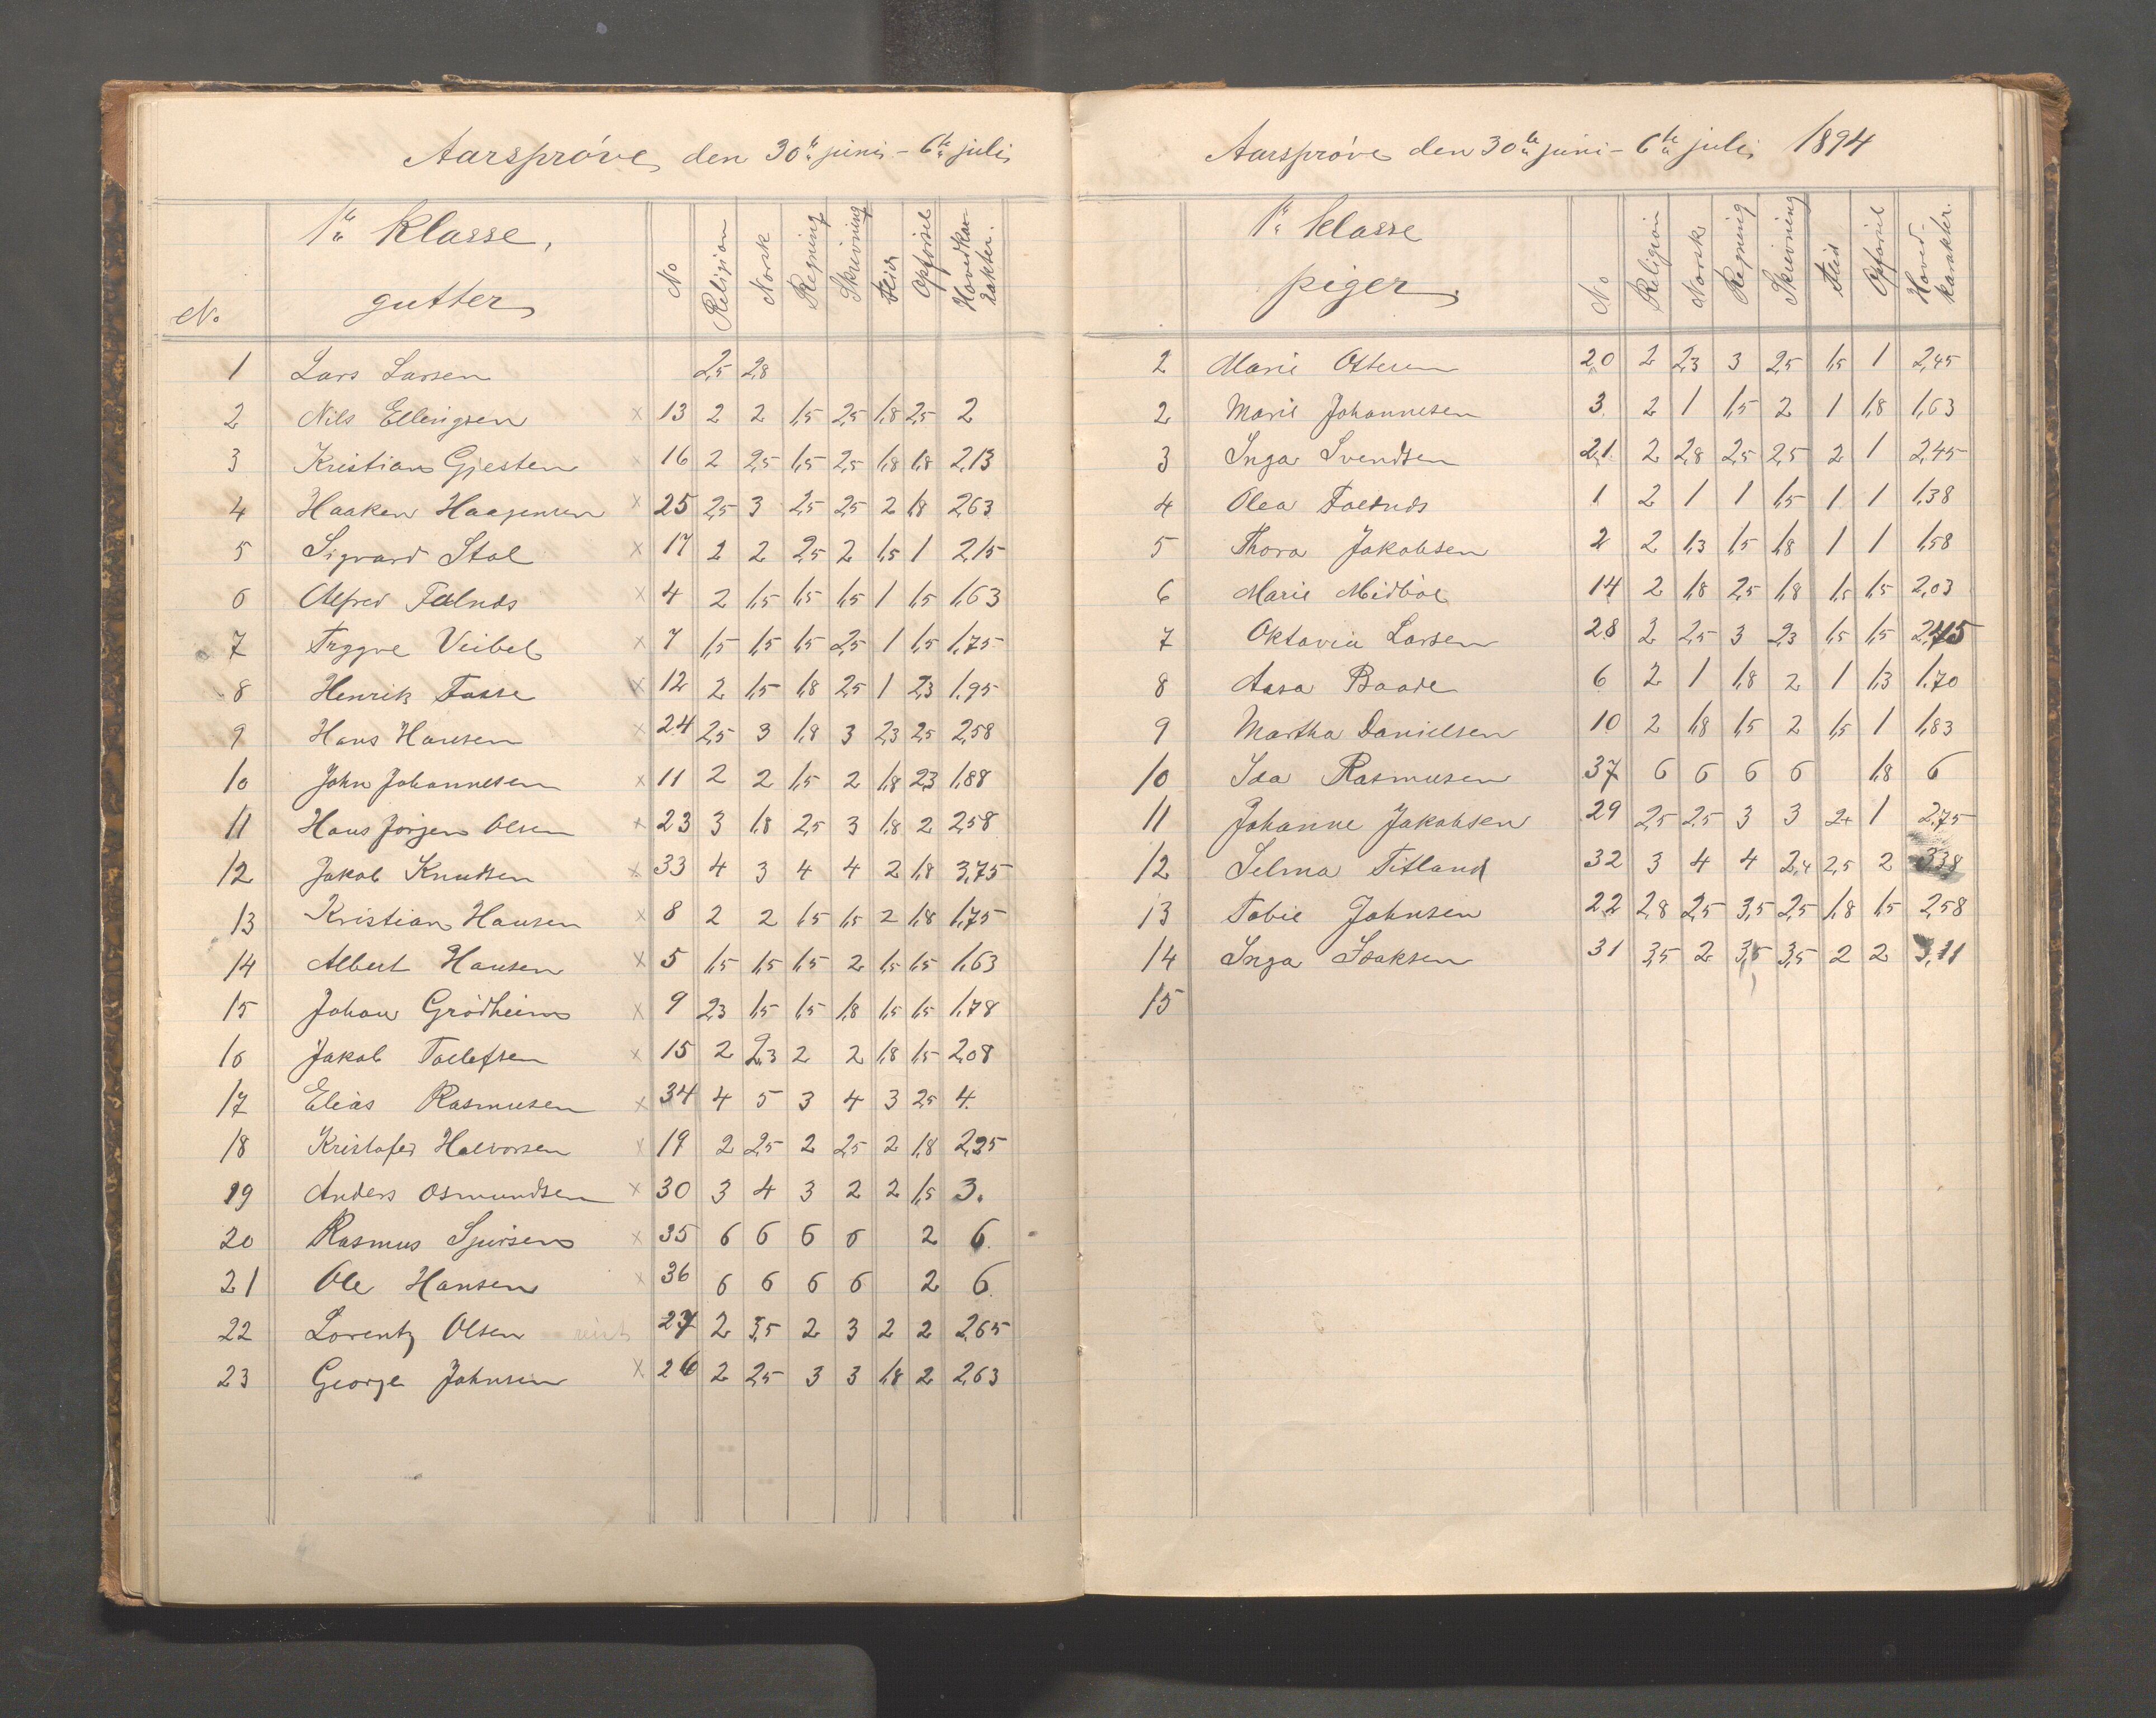 Aarsprøve den 30te juni - 6te juli
1ste klasse,
gutter
No. No Religion Norsk Regning Skrivning Flid Opførsel Hovedkarakter.
1 Lars Larsen 2,5 2,8
2 Nils Ellingsen x 13 2 2 1,5 2,5 1,8 2,5 2
3 Kristian Gjesten x 16 2 2,5 1,5 2,5 1,8 1,8 2,13
4 Haaken Haagensen x 25 2,5 3 2,5 2,5 2 1,8 2,63
5 Sigvard Stol x 17 2 2 2,5 2 1,5 1 2,15
6 Alfred Falnes x 4 2 1,5 1,5 1,5 1 1,5 1,63
7 Trygve Veibel x 7 1,5 1,5 1,5 2,5 1 1,5 1,75
8 Henrik Fosse x 12 2 1,5 1,8 2,5 1 2,3 1,95
9 Hans Hansen x 24 2,5 3 1,8 3 2,3 2,5 2,58
10 John Johannesen x 11 2 2 1,5 2 1,8 2,3 1,88
11 Hans Jørgen Olsen x 23 3 1,8 2,5 3 1,8 2 2,58
12 Jakob Knudsen x 33 4 3 4 4 2 1,8 3,75
13 Kristian Hansen x 8 2 2 1,5 1,5 2 1,8 1,75
14 Albert Hansen x 5 1,5 1,5 1,5 2 1,5 1,5 1,63
15 Johan Grødheim x 9 2,3 1,5 1,5 1,8 1,5 1,5 1,78
16 Jakob Tollefsen x 15 2 2,3 2 2 1,8 1,5 2,08
17 Elias Rasmusen x 34 4 5 3 4 3 2,5 4.
18 Kristofer Halvorsen x 19 2 2,5 2 2,5 2 1,8 2,25
19 Anders Osmundsen x 30 3 4 3 2 2 1,5 3.
20 Rasmus Sjursen x 35 6 6 6 6 2 6.
21 Ole Hansen x 36 6 6 6 6 2 6.
22 Lorentz Olsen 27 2 3,5 2 3 2 2 2,65
23 George Johnsen x 26 2 2,5 3 3 1,8 2 2,63
Aarsprøve den 30te juni - 6te juli 1894
1ste klasse
piger.
No Religion Norsk Regning Skrivning Flid Opførsel Hoved-karakter.
2 Marie Ottesen 20 2 2,3 3 2,5 1,5 1 2,45
2 Marie Johannesen 3 2 1 1,5 2 1 1,8 1,63
3 Inga Svendsen 21 2 2,8 2,5 2,5 2 1 2,45
4 Olea Falnes 1 2 1 1 1,5 1 1 1,38
5 Thora Jakobsen 2 2 1,3 1,5 1,8 1 1 1,58
6 Marie Midbøe 14 2 1,8 2,5 1,8 1,5 1,5 2,03
7 Oktavia Larsen 28 2 2,5 3 2,3 1,5 1,5 2,45
8 Aasa Baade 6 2 1 1,8 2 1 1,3 1,70
9 Martha Danielsen 10 2 1,8 1,5 2 1,5 1 1,83
10 Ida Rasmusen 37 6 6 6 6 1,8 6
11 Johanne Jakobsen 29 2,5 2,5 3 3 2+ 1 2,75
12 Selma Titland 32 3 4 4 2,4 2,5 2 3,38
13 Tobie Johnsen 22 2,8 2,5 3,5 2,5 1,8 1,5 2,58
14 Inga Isaksen 31 3,5 2 3,5 3,5 2 2 3,11
15